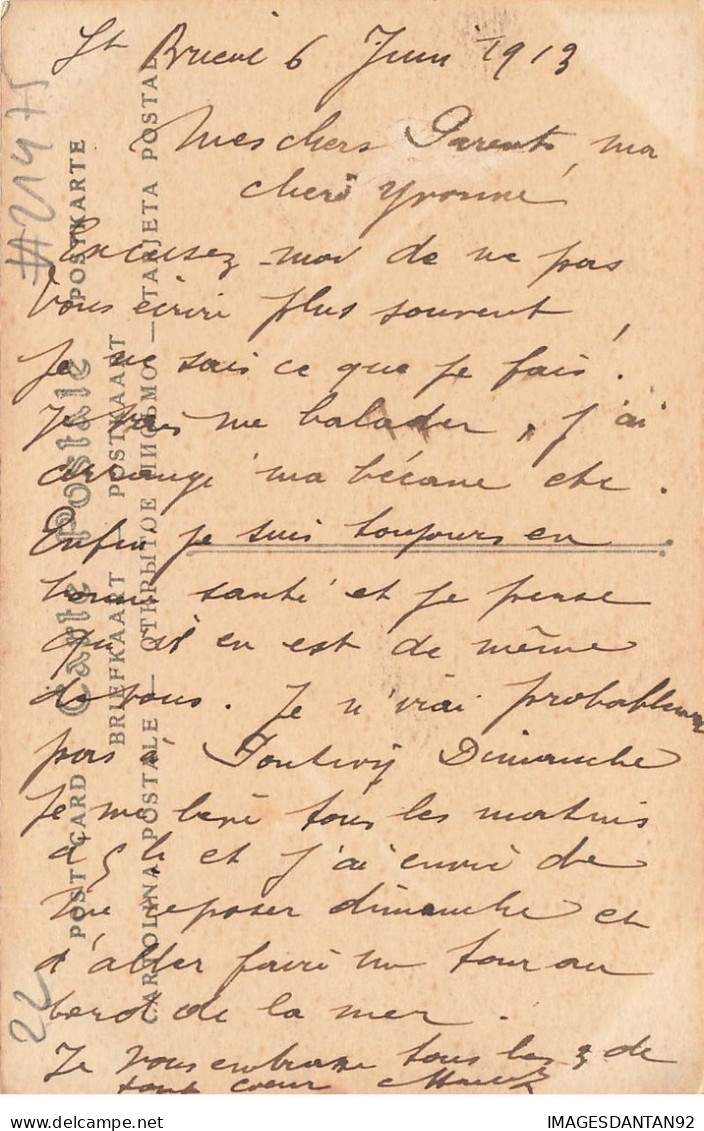 St Brieuc 6 Juin 1913
Mes chers Parents, ma
cher Yvonne,
Excusez-moi de ne pas
vous écrire plus souvent,
Je ne sais ce que je fais!
Je vais me balader, j'ai
arrangé ma bécane etc.
Enfin je suis toujours en
bonne santé et je pense
qu'il en est de même
de vous. Je n'irai probablement
pas à Pontivy Dimanche
Je me lève tous les matins
à 5 h et j'ai envie de
me reposer dimanche et
d'aller faire un tour au
bord de la mer.
Je vous embrasse tous les 3 de
tout coeur
#21475
22
Carte Postale
POST CARD POSTKARTE
BRIEFKAART POSTKAART
CARTOLINA POSTALE — ОТКРЫТОЕ ПИСЬМО — TARJETA POSTAL
IMAGESDANTAN92